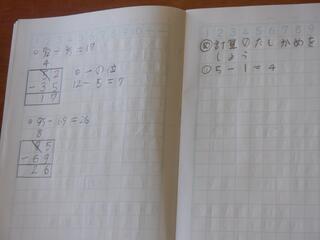 ○52-35=17
4
52
-35
17
○一の位
12-5=7
○95-69=26
8
95
-69
26
問計算のたしかめを
しよう
①5-1=4